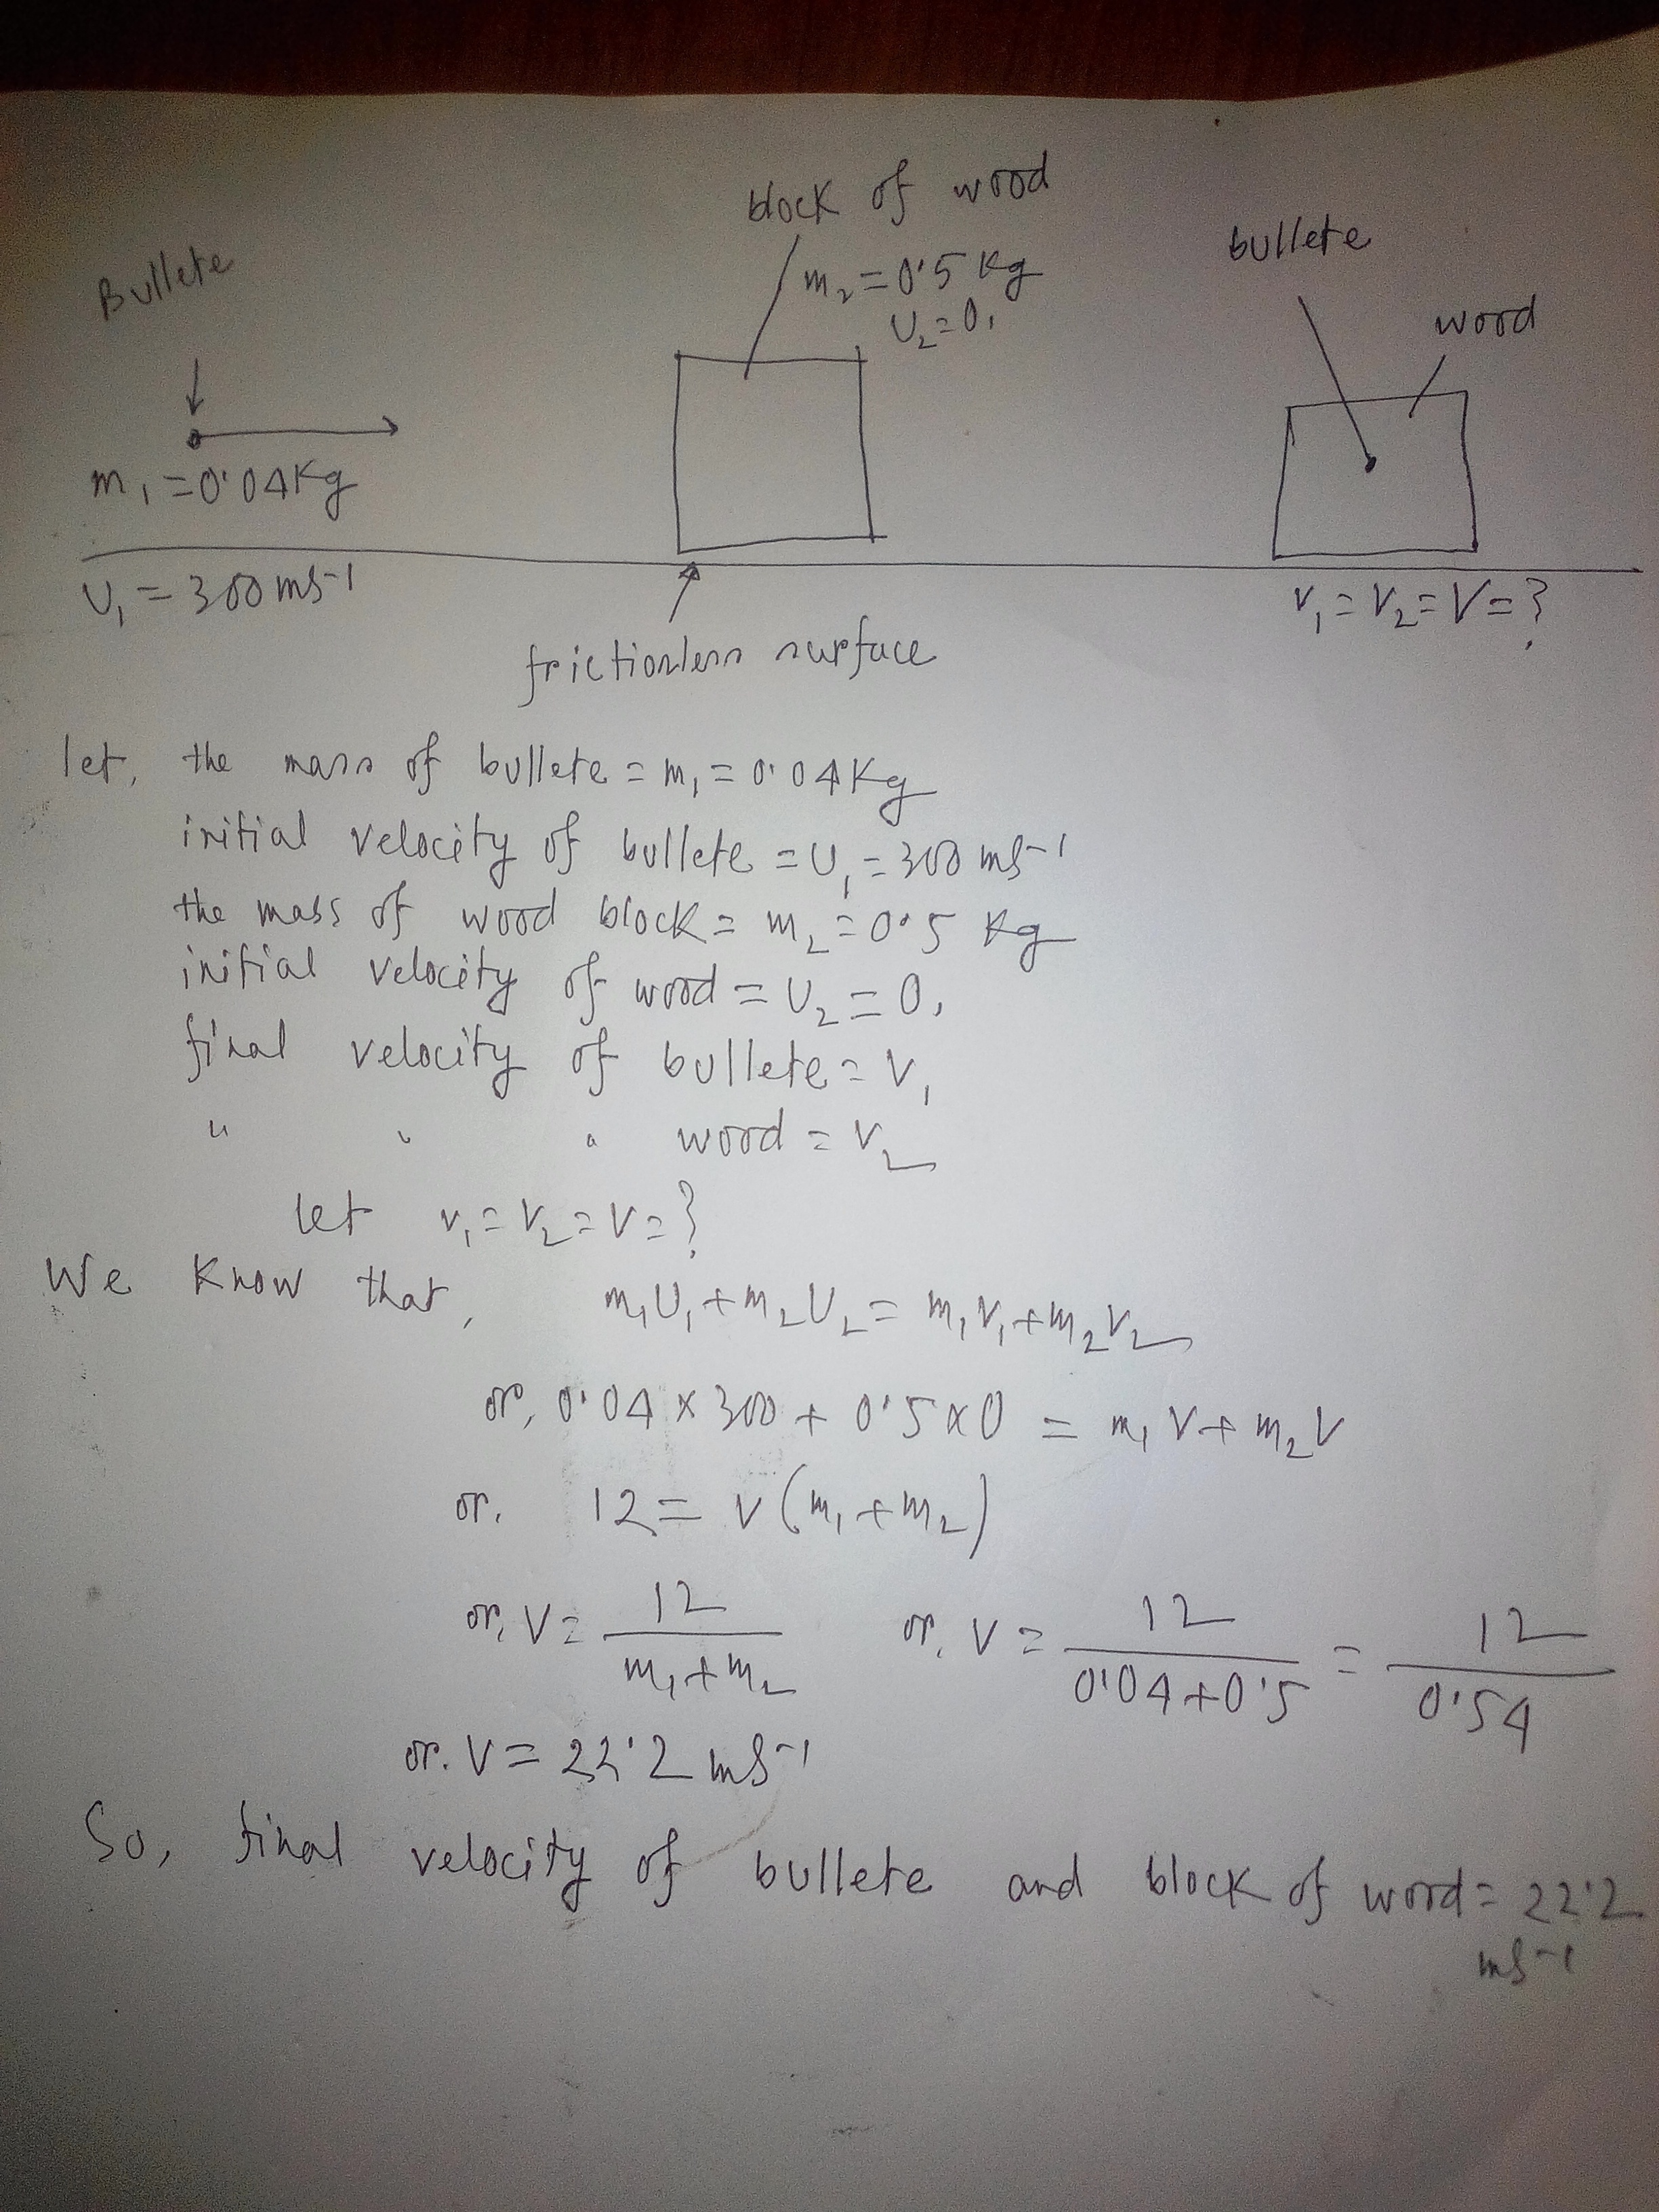 block of wood
m₂ = 0·5 Kg
U₂ = 0,
Bullete
m₁ = 0·04Kg
U₁ = 300 ms⁻¹
bullete
wood
V₁ = V₂ = V = ?
frictionless surface
let, the mass of bullete = m₁ = 0·04Kg
initial velocity of bullete = U₁ = 300 ms⁻¹
the mass of wood block = m₂ = 0·5 Kg
initial velocity of wood = U₂ = 0,
final velocity of bullete = V₁
" " " wood = V₂
let V₁ = V₂ = V = ?
We Know that, m₁U₁ + m₂U₂ = m₁V₁ + m₂V₂
or, 0·04 × 300 + 0·5 × 0 = m₁V + m₂V
or, 12 = V (m₁ + m₂)
or, V = 12 / m₁ + m₂ or, V = 12 / 0·04 + 0·5 = 12 / 0·54
or. V = 22·2 ms⁻¹
So, final velocity of bullete and block of wood = 22·2
ms⁻¹